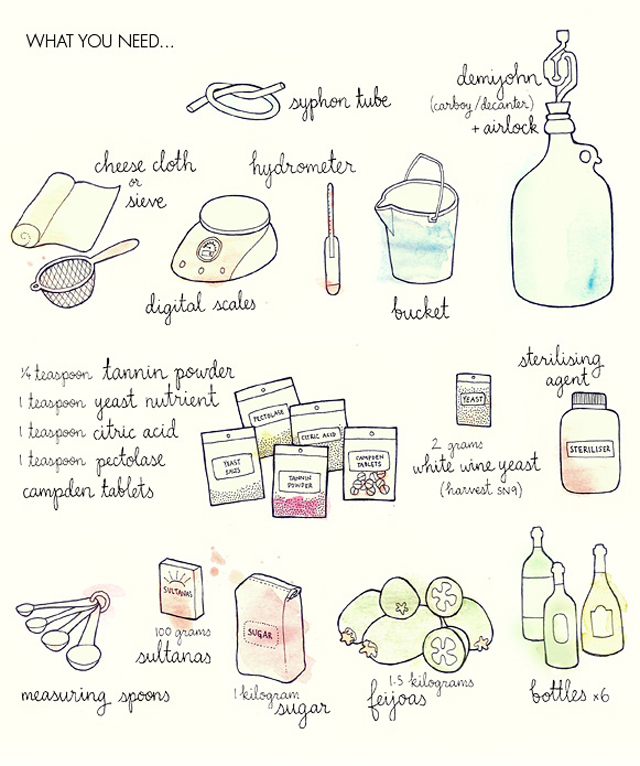 WHAT YOU NEED...
syphon tube
demijohn
(carboy/decanter)
+ airlock
cheese cloth
or
sieve
hydrometer
digital scales
bucket
¼ teaspoon tannin powder
1 teaspoon yeast nutrient
1 teaspoon citric acid
1 teaspoon pectolase
campden tablets
PECTOLASE
CITRIC ACID
YEAST
SALTS
TANNIN
POWDER
CAMPDEN
TABLETS
YEAST
2 grams
white wine yeast
(harvest SN9)
sterilising
agent
STERILISER
measuring spoons
SULTANAS
100 grams
sultanas
SUGAR
1 kilogram
sugar
1.5 kilograms
feijoas
bottles x6